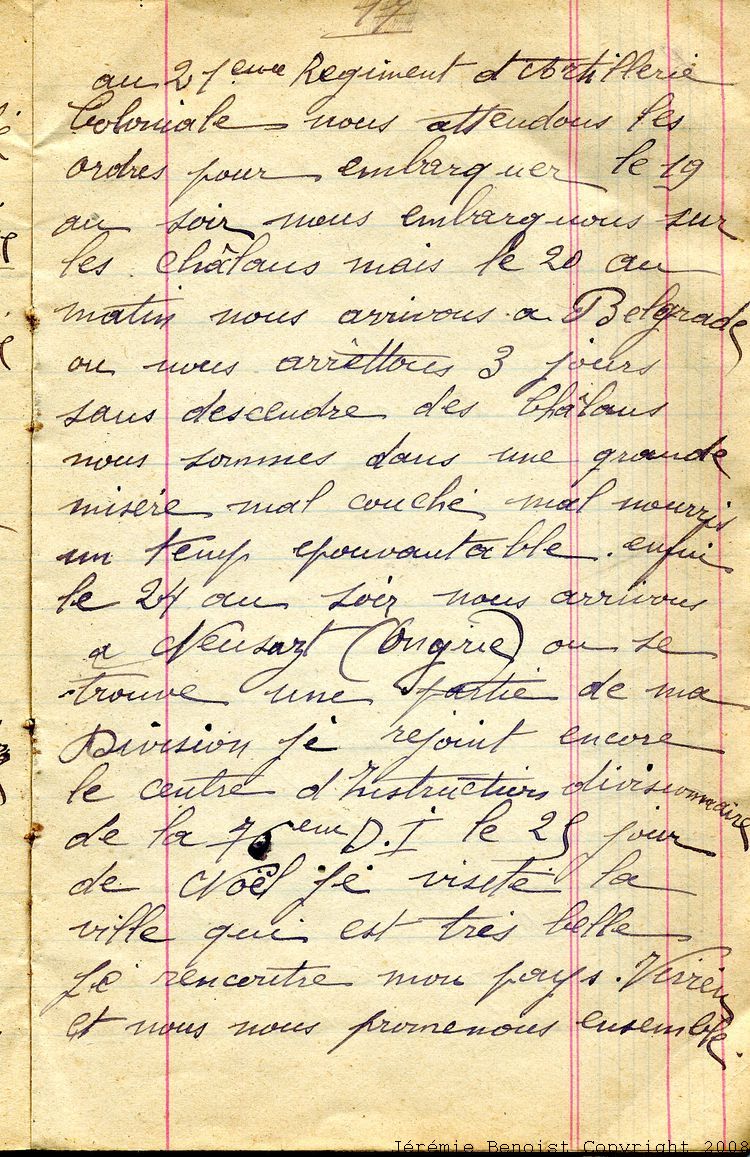 17
au 21eme Regiment d'Artillerie
Coloniale nous attendons les
ordres pour embarquer le 19
au soir nous embarquons sur
les châlans mais le 20 au
matin nous arrivons a Belgrade
ou nous arrêttons 3 jours
sans descendre des châlans
nous sommes dans une grande
misère mal couché mal nourris
un temp epouvantable. enfin
le 24 au soir nous arrivons
a Neusazt (Ongrie) ou se
trouve une partie de ma
Division je rejoint encore
le centre d'Instruction divisionnaire
de la 76eme D.I le 25 jour
de Noël je visite la
ville qui est très belle
je rencontre mon pays. Vivien
et nous nous promenons ensemble.
Jérémie Benoist Copyright 2008